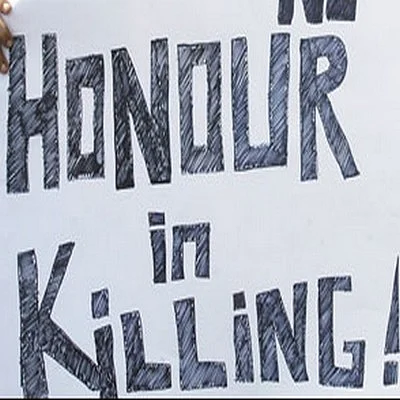 No
HONOUR
in
KiLLiNG!